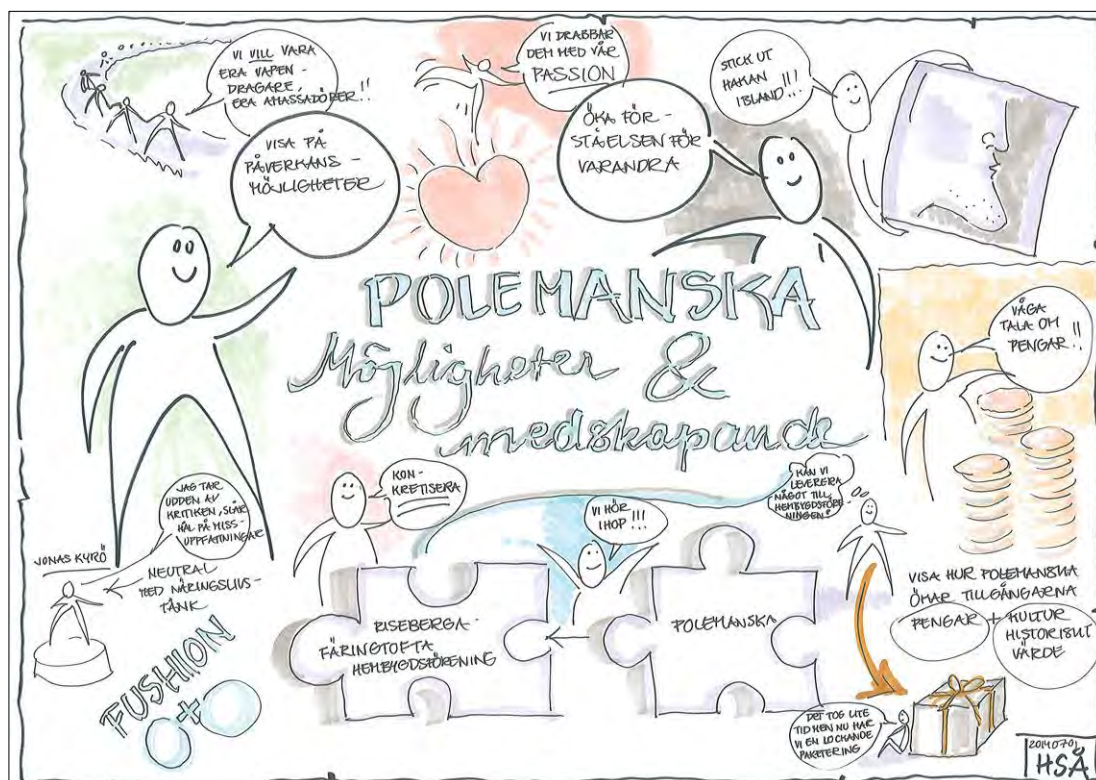 VI VILL VARA
ERA VAPEN-
DRAGARE,
ERA AMASSADÖRER!!
VISA PÅ
PÅVERKANS-
MÖJLIGHETER
VI DRABBAR
DEM MED VÅR
PASSION
ÖKA FÖR-
STÅELSEN FÖR
VARANDRA
STICK UT
HAKAN
IBLAND!!!
POLEMANSKA
Möjligheter &
medskapande
VÅGA
TALA OM
PENGAR!!
JAG TAR
UDDEN AV
KRITIKEN, SLÅR
HÅL PÅ MISS-
UPPFATTNINGAR
JONAS KYRÖ
NEUTRAL
MED NÄRINGSLIVS-
TÄNK
FUSHION
+
KON-
KRETISERA
VI HÖR
IHOP!!!
KAN VI
LEVERERA
NÅGOT TILL
HEMBYGDSFÖRE-
NINGEN?
RISEBERGA-
FÄRINGTOFTA
HEMBYGDSFÖRENING
POLEMANSKA
VISA HUR POLEMANSKA
ÖKAR TILLGÅNGARNA
PENGAR + KULTUR
HISTORISKT
VÄRDE
DET TOG LITE
TID MEN NU HAR
VI EN LOCKANDE
PAKETERING
20140701
HSÅ